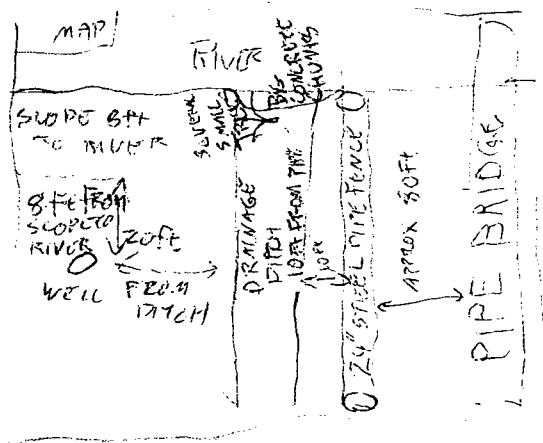 MAP
RIVER
SLOPE 8FT
TO RIVER
8 FT FROM
SLOPE TO
RIVER
20FT
FROM
DITCH
WELL
SEVERAL
SMALL
BIG
CONCRETE
CHUNKS
DRAINAGE
DITCH
10FT FROM PIPE
10FT
24" STEEL PIPE FENCE
APPROX 80FT
PIPE BRIDGE